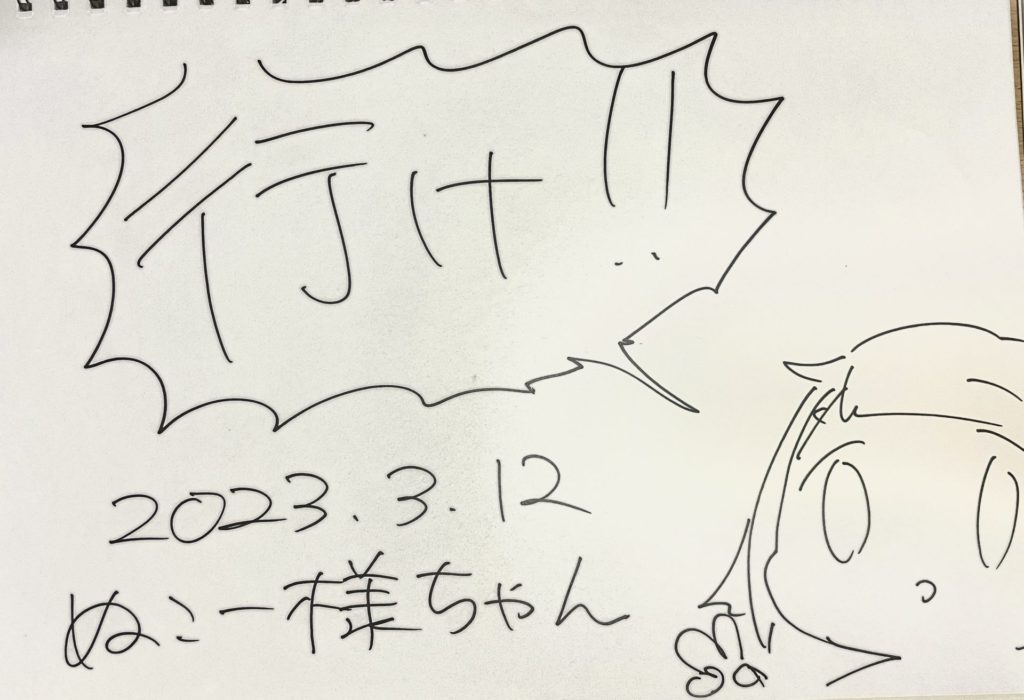 行け!!
2023.3.12
ぬこー様ちゃん